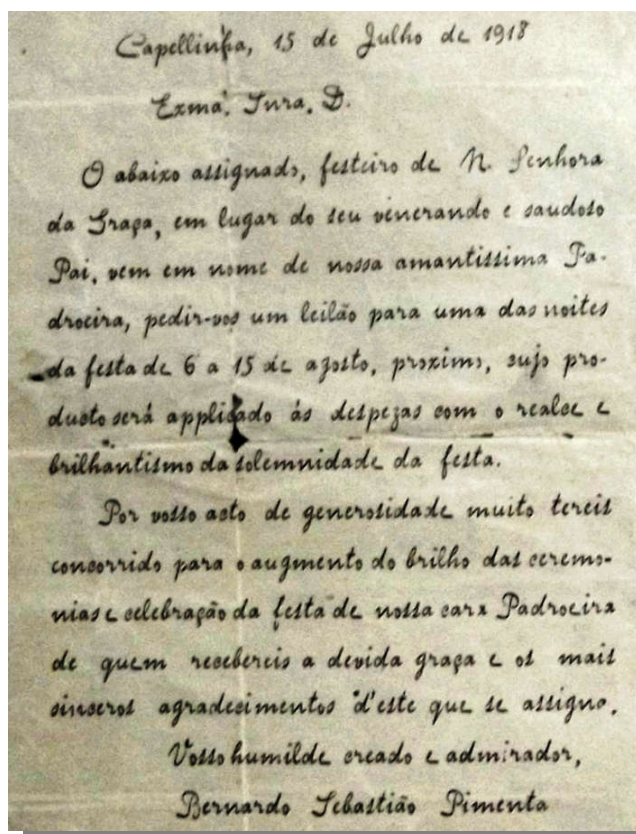 Capellinha, 15 de Julho de 1918
Exma. Snra. D.
O abaixo assignado, festeiro de N. Senhora
da Graça, em lugar do seu venerando e saudoso
Pai, vem em nome de nossa amantissima Pa-
droeira, pedir-vos um leilão para uma das noites
da festa de 6 a 15 de agosto, proximo, cujo pro-
ducto será applicado ás despezas com o realce e
brilhantismo da solemnidade da festa.
Por vosso acto de generosidade muito tereis
concorrido para o augmento do brilho das ceremo-
nias e celebração da festa de nossa cara Padroeira
de quem recebereis a devida graça e os mais
sinceros agradecimentos d'este que se assigna.
Vosso humilde creado e admirador,
Bernardo Sebastião Pimenta